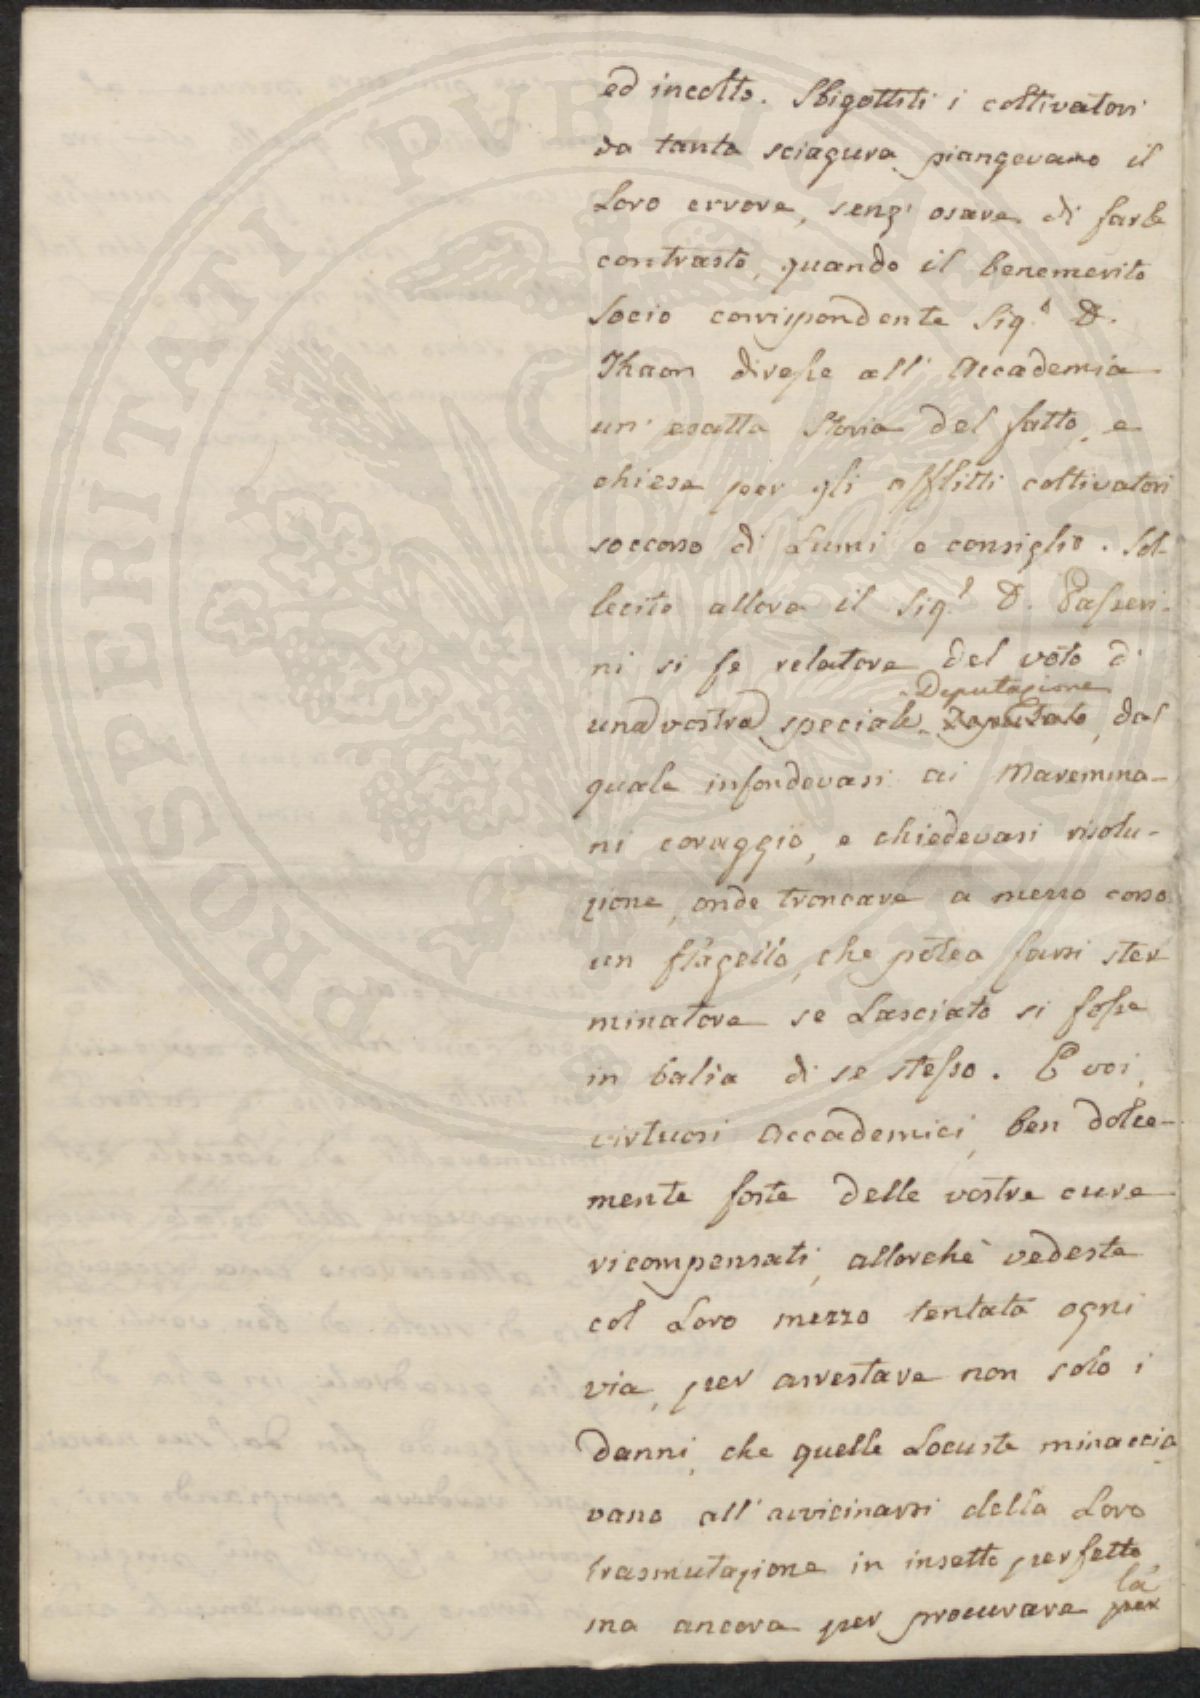 ed incolto. Sbigottiti i coltivatori
da tanta sciagura piangevano il
Loro errore, senz' osare di farle
contrasto, quando il benemerito
socio corrispondente Sig.r D.
Thaon diresse all' Accademia
un' esatta Storia del fatto, e
chiese per gli afflitti coltivatori
soccorso di Lumi e consiglio. Sol-
lecito allora il Sig.r D. Passeri-
ni si fe relatore del voto di
Deputazione
una vostra speciale Deputato, dal
quale infondevasi ai Maremma-
ni coraggio, e chiedevasi risolu-
zione, onde troncare a mezzo corso
un flagello, che potea farsi ster
minatore se Lasciato si fosse
in balia di se stesso. E voi,
virtuosi Accademici, ben dolce-
mente foste delle vostre cure
ricompensati, allorchè vedeste
col Loro mezzo tentata ogni
via, per arrestare non solo i
danni, che quelle Locuste minaccia
vano all' avvicinarsi della Loro
trasmutazione in insetto perfetto,
la
ma ancora per procurare per
PROSPERITATI PUBLICAE